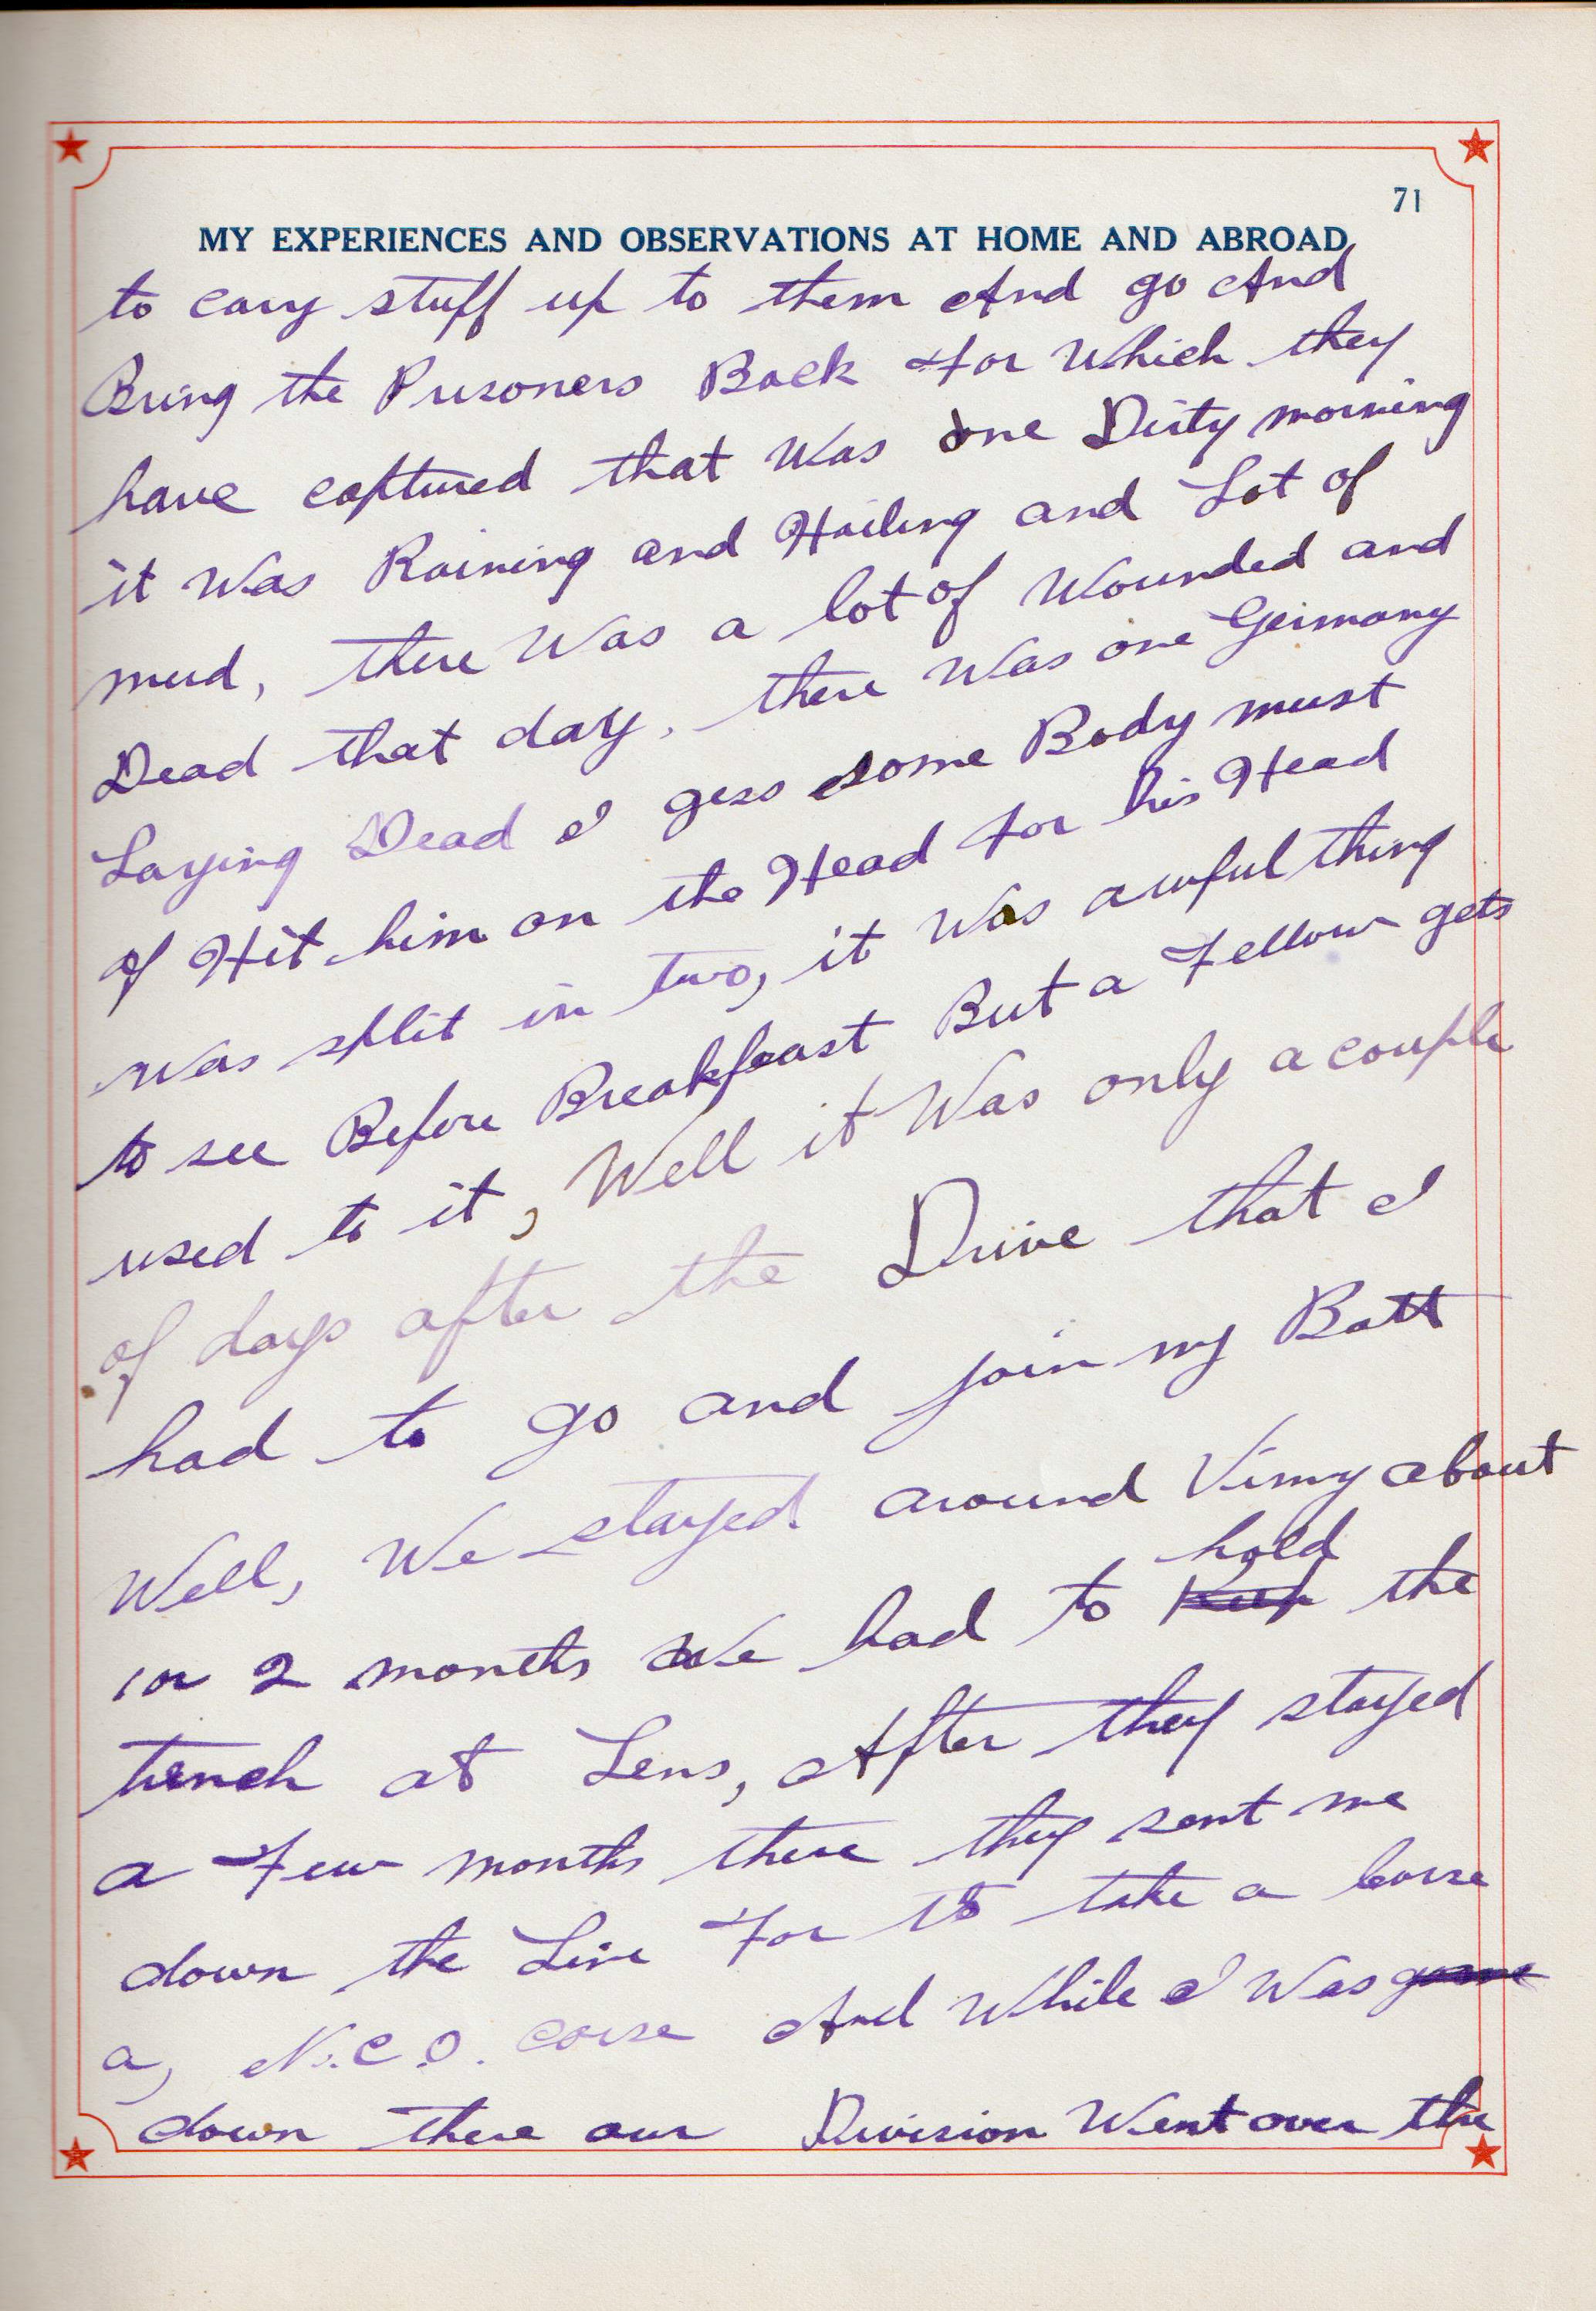 71
MY EXPERIENCES AND OBSERVATIONS AT HOME AND ABROAD
to cary stuff up to them And go And
Bring the Prisoners Back for Which they
have captured that Was one Dirty morning
it Was Raining and Hailing and Lot of
mud, there Was a lot of Wounded and
Dead that day, there Was one Germany
Laying Dead I gess some Body must
of Hit him on the Head for his Head
was split in two, it Was awful thing
to see Before Breakfeast But a Fellow gets
used to it, Well it Was only a couple
of days after the Drive that I
had to go and join my Batt
Well, We stayed around Vimy about
hold
1 or 2 months We had to Keep the
trench at Lens, After they stayed
a Few months there they sent me
down the Line for to take a
a, N.C.O. corse And While I Was gone
down there our Division Went over the